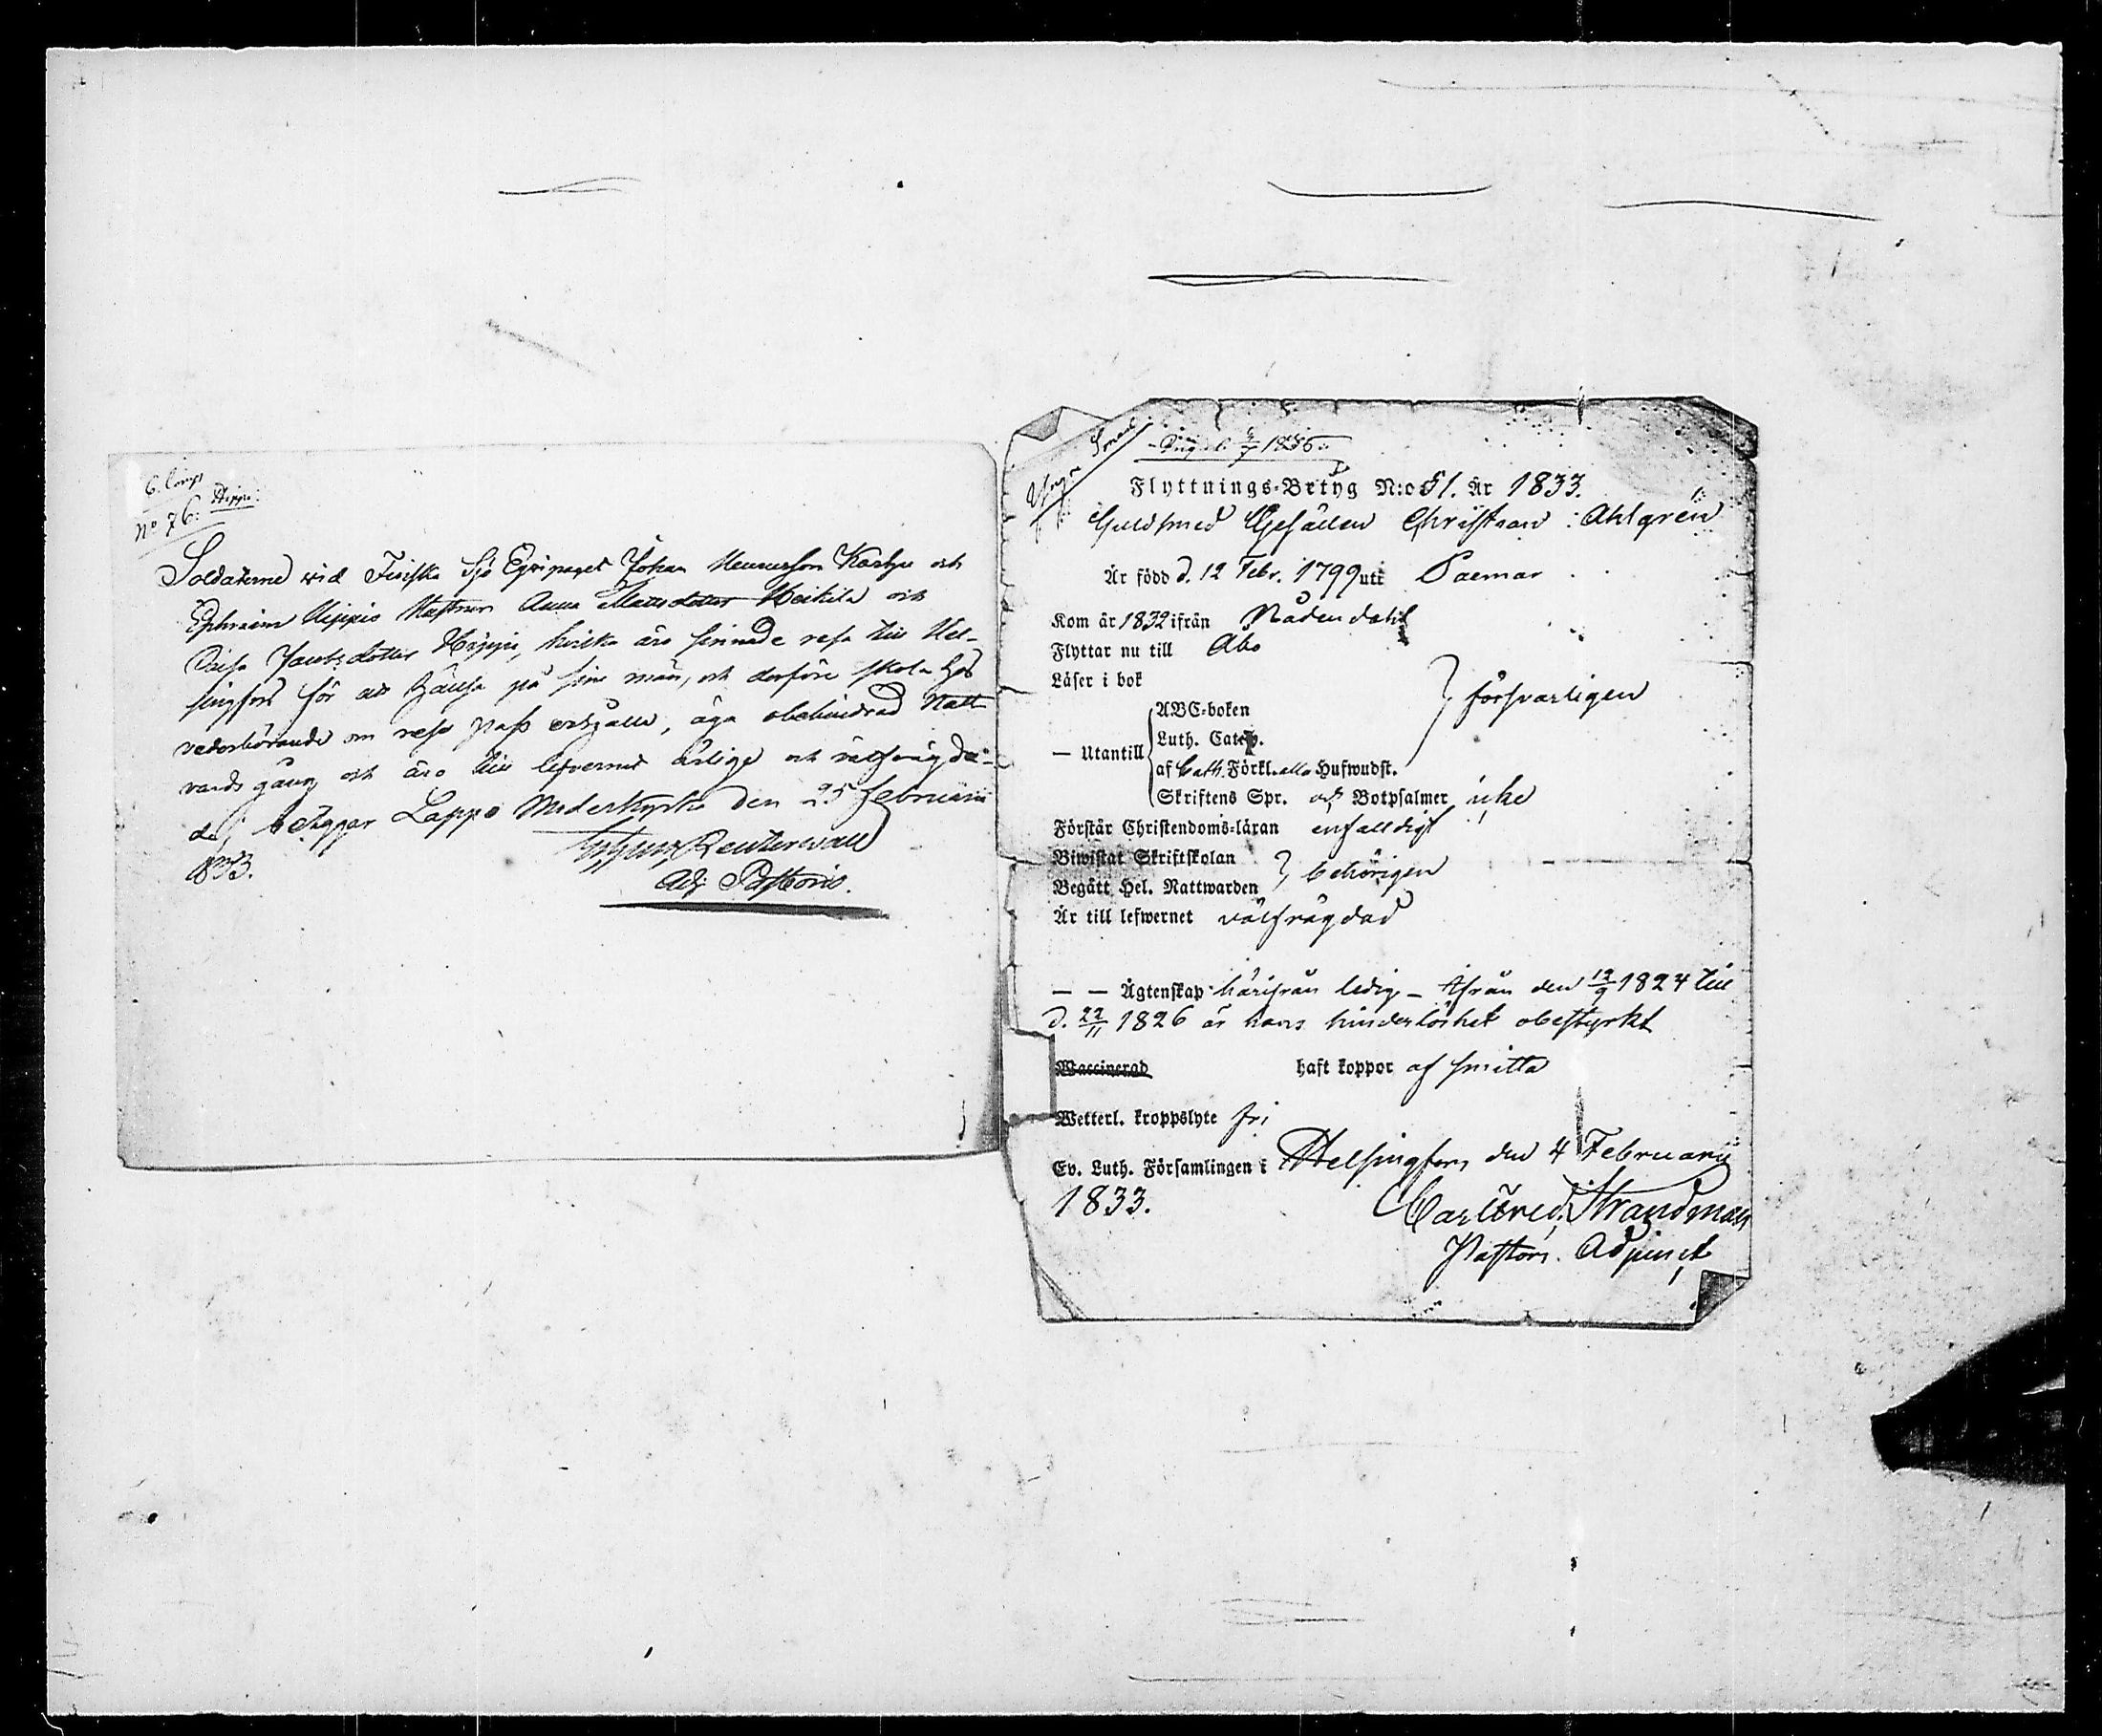 6. Comp.
No 76. Hippi.
Soldaterne vid Finska Sjö Equipaget Johan Kaslje och
Ephraim Hippis Hustrur Anna Mattsdotter Heikilä och
Caisa Jacobsdotter Hippi, hvilka äro sinnade resa till Hel-
singfors för att hälsa på sine män, och derföre skola hos
vederbörande om rese pass anhålla, äga obehindrad Natt-
vards gång och äro till lefvernet ärlige och välfrägda-
de; betygar Lappo Moderkyrka den 25 Februarii
1833.
Reuterwall
Adj. Pastoris.
1836
Flyttnings-Betyg N:o 51. År 1833.
Guldsmed Gesällen Christian Ahlgrén
Är född d. 12 Febr. 1799 uti Paemar
Kom år 1832 ifrån Nådendahl
Flyttar nu till Åbo
Läser i bok
ABC-boken
försvarligen
Luth. Catech.
— Utantill
af Cath. Förkl. alla Hufwudst.
Skriftens Spr. och Botpsalmer icke
Förstår Christendoms-läran enfaldigt
Biwistat Skriftskolan
behörigen
Begått Hel. Nattwarden
Är till lefwernet välfrägdad
— — Ägtenskap härifrån ledig — Ifrån den 12/9 1824 till
d. 22/11 1826 är hans hinderlöshet obestyrkt
Waccinerad haft koppor af smitta
Wetterl. kroppslyte fri
Ev. Luth. Församlingen i Helsingfors den 4 February
1833.
Carl Fred. Strandman
Pastors Adjunct